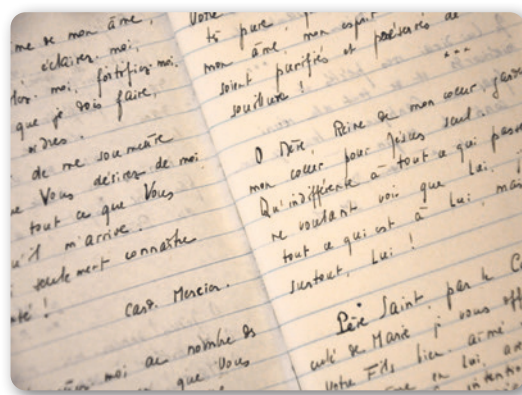 me de mon âme,
éclairez-moi,
moi, fortifiez-moi.
que je dois faire,
ordres.
de me soumettre
Vous désirez de moi
tout ce que Vous
m'arrive.
seulement connaître
Card. Mercier.
moi au nombre de
que Vous
Votre
té pure
mon âme, mon esprit
soient purifiés et préservés de
souillure !
O Mère, Reine de mon coeur, garde
mon coeur pour Jésus seul.
Qu'indifférente à tout ce qui passe
ne voulant voir que Lui,
tout ce qui est à Lui, mais
surtout, Lui !
Père Saint, par le
de Marie je vous
votre Fils bien-aimé
en Lui,